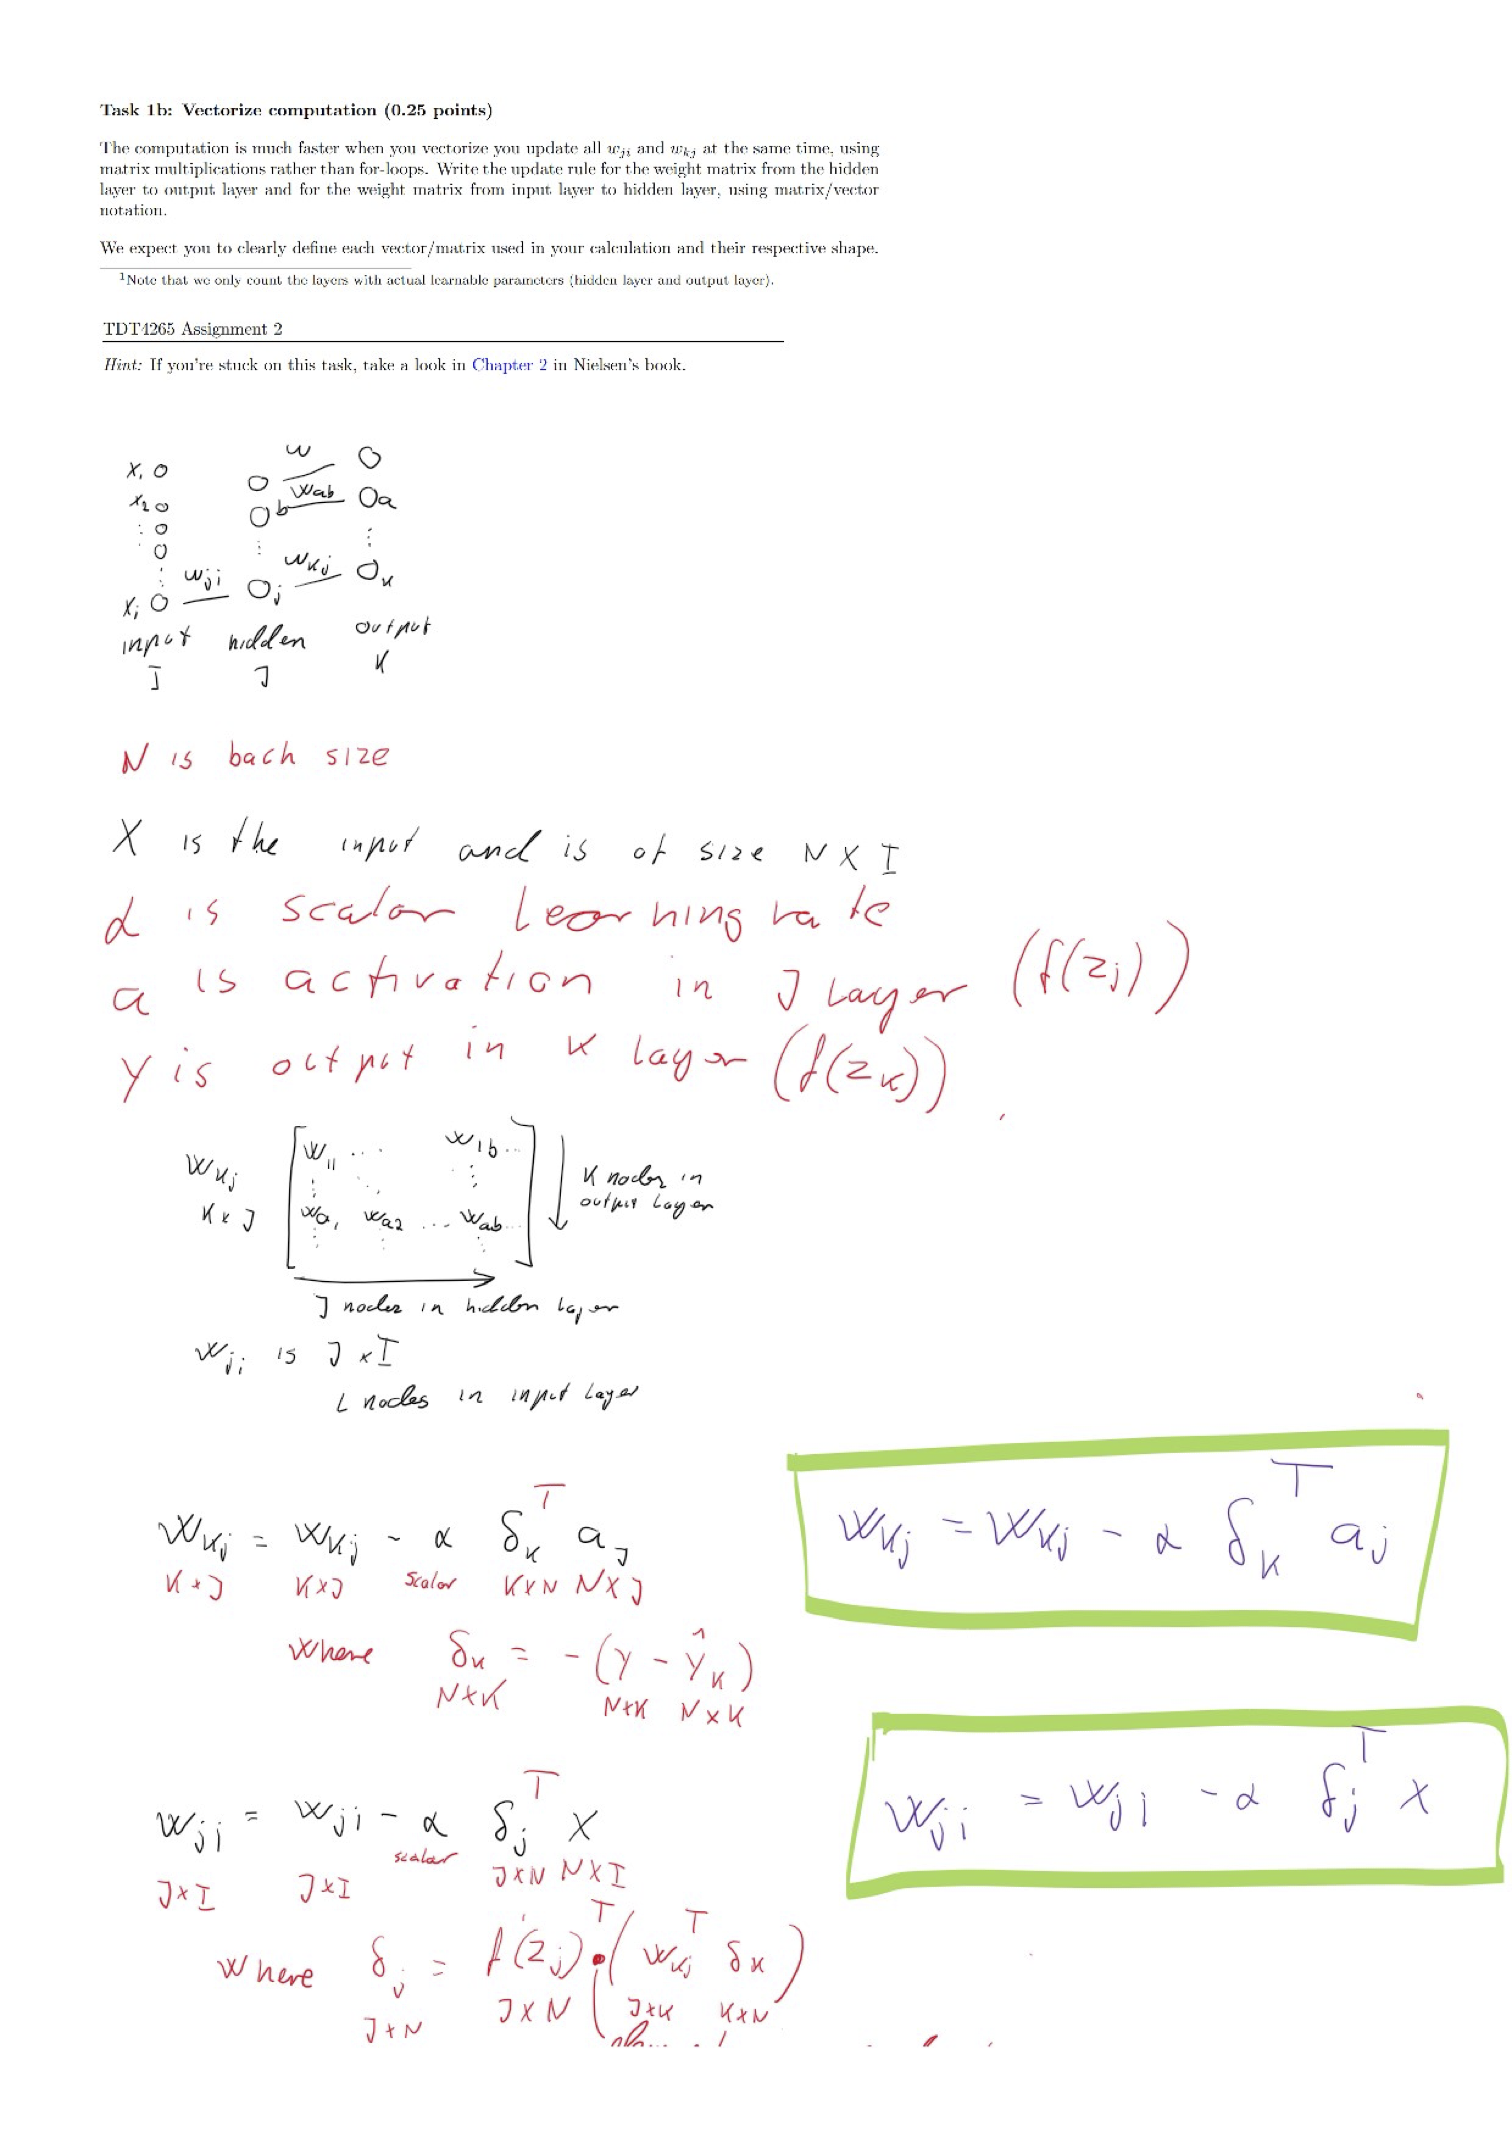 Task 1b: Vectorize computation (0.25 points)
The computation is much faster when you vectorize you update all w_ji and w_kj at the same time, using
matrix multiplications rather than for-loops. Write the update rule for the weight matrix from the hidden
layer to output layer and for the weight matrix from input layer to hidden layer, using matrix/vector
notation.
We expect you to clearly define each vector/matrix used in your calculation and their respective shape.
¹Note that we only count the layers with actual learnable parameters (hidden layer and output layer).
TDT4265 Assignment 2
Hint: If you're stuck on this task, take a look in Chapter 2 in Nielsen's book.
w
x₁
x₂ b w_ab a
w_ji w_kj k
x_i j
input hidden output
I J K
N is bach size
X is the input and is of size N X I
α is scalar learning rate
a is activation in J Layer (f(z_j))
y is output in K layer (f(z_k))
w_kj [w_11 ... w_1b ...
K x J w_a1 w_a2 ... w_ab ...] K nodes in
output layer
J nodes in hidden layer
w_ji is J x I
I nodes in input layer
w_kj = w_kj - α δ_k^T a_J
K x J K x J scalar K x N N x J
w_kj = w_kj - α δ_k^T a_j
where δ_k = -(y - ŷ_k)
N x K N x K N x K
w_ji = w_ji - α δ_j^T X
J x I J x I scalar J x N N x I
w_ji = w_ji - α δ_j^T X
where δ_j = f'(z_j)^T • (w_kj^T δ_k)
J x N J x N J x K K x N